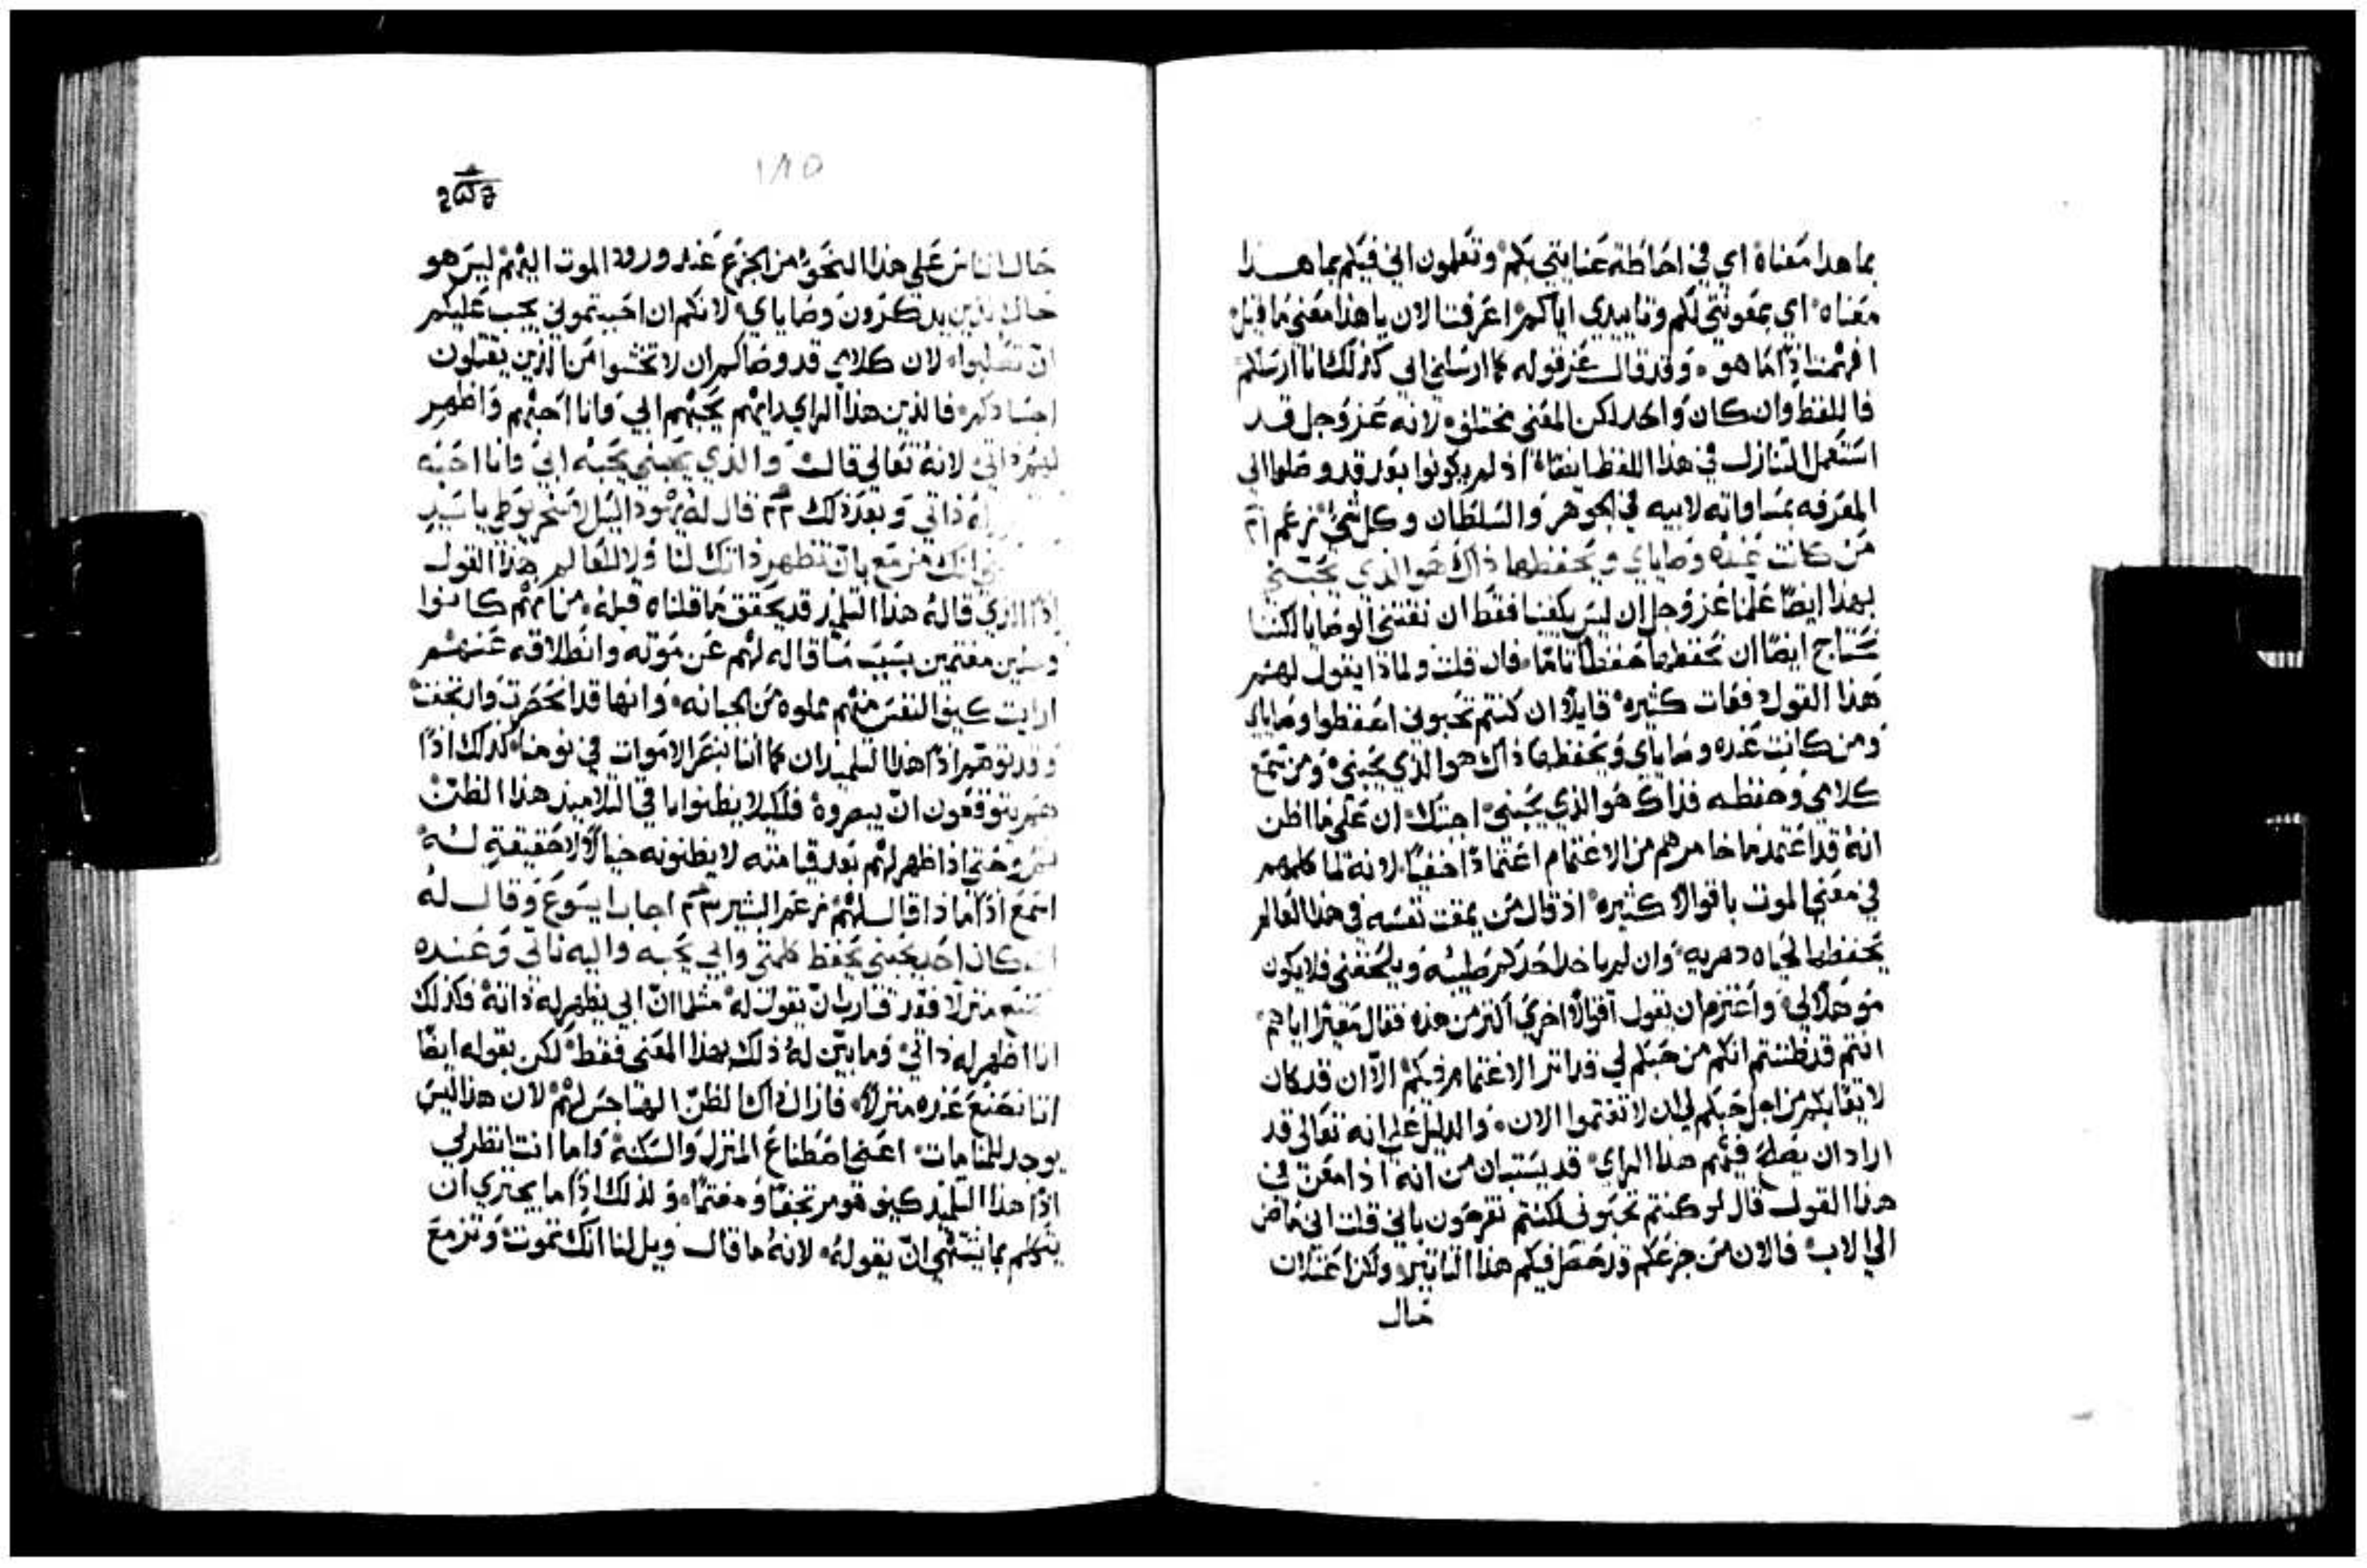 بما هدا معناه اي في احاطة عنايتي بكم وتعلمون اني فيكم بما هذا
معناه اي بمعونتي لكم وتاييدي اياكم اعرفت الان يا هذا معني ما قيل
افهمت اذًا ما هو وقد قال عز قوله كما ارسلني ابي كذلك انا ارسلكم
فاللفظ وان كان واحد لكن المعني مختلف لانه عز وجل قد
استعمل التنازل في هذا اللفظ ايضًا اذ لم يكونوا بعد قد وصلوا الي
المعرفه بمساواته لابيه في الجوهر والسلطان وكل شي نزعم
من كانت عنده وصاياي ويحفظها ذاك هو الذي يحبني
بهذا ايضًا علمنا عز وجل ان ليس يكفينا فقط ان نقتني الوصايا لكننا
نحتاج ايضًا ان نحفظها حفظًا تامًا فان قلت ولماذا يقول لهم
هذا القول دفعات كثيره قايلًا ان كنتم تحبوني احفظوا وصاياي
ومن كانت عنده وصاياي ويحفظها ذاك هو الذي يحبني ومن سمع
كلامي وحفظه فذاك هو الذي يحبني اجبتك ان علي ما اظن
انه قد اعتمد ما خامرهم من الاغتمام اعتمادًا خفيًا لانه لما كلمهم
في معني الموت باقوال كثيره اذ قال من يمقت نفسه في هذا العالم
يحفظها لحياه دهريه وان لم ياخذ احدكم صليبه ويلحقني فلا يكون
موهلًا لي واعتزم ان يقول اقوالًا اخري اكثر من هذه فقال معيرًا اياهم
انتم قد ظننتم انكم من حبكم لي قد اثر الاغتمام فيكم الا ان قد كان
لايقًا بكم من اجل حبكم لي ان لا تغتموا الان والدليل علي انه تعالي قد
اراد ان يصلح فيهم هذا الراي قد يستبان من انه اذ امعن في
هذا القول قال لو كنتم تحبوني لكنتم تفرحون باني قلت اني ماض
الي الاب فالان من جزعكم قد حصل فيكم هذا التاثير ولكن اعتدلت
حال
١٨٥
حال الناس علي هذا النحو من الجزع عند ورود الموت اليهم ليس هو
حال الذين يذكرون وصاياي لانكم ان احببتموني يجب عليكم
ان تغلبوا لان كلامي قد وصاكم ان لا تخشوا من الذين يقتلون
اجسادكم فالذين هذا الراي رايهم يحبهم ابي وانا احبهم واظهر
لهم ذاتي لانه تعالي قال والذي يحبني يحبه ابي وانا احبه
له ذاتي وبعد ذلك قال له يهودا ليس الاسخريوطي يا سيد
انك مزمع بان تظهر ذاتك لنا ولا للعالم هذا القول
اذًا الذي قاله هذا التلميذ قد يحقق ما قلناه قبله من انهم كانوا
مغتمين بسبب ما قاله لهم عن موته وانطلاقه عنهم
ارايت كيف النفس منهم مملوه من الجبانه وانها قد انحصرت وارتجفت
وقد توهم اذًا هذا التلميذ ان كما اننا نبصر الاموات في نومنا كذلك اذًا
هم يتوقعون ان يبصروه فلكيلا يظنوا باقي التلاميذ هذا الظن
حتي اذا ظهر لهم بعد قيامته لا يظنونه خيالًا لا حقيقة له
اسمع اذًا ماذا قال لهم زعم البشير اجاب ايسوع وقال له
ان كان احد يحبني يحفظ كلمتي وابي يحبه واليه ناتي وعنده
نصنع منزلًا فقد قارب ان يقول له مثلما ان ابي يظهر له ذاته فكذلك
انا اظهر له ذاتي وما بين له ذلك بهذا المعني فقط لكن بقوله ايضًا
اننا نصنع عنده منزلًا فازال ذاك الظن الهاجس لهم لان هذا ليس
يوجد للمنامات اعني اصطناع المنزل والسكنه واما انت انظر لي
اذًا هذا التلميذ كيف هو مرتجفًا ومغتمًا ولذلك اذًا ما يجتري ان
يتكلم بما يشتهي ان يقوله لانه ما قال ويل لنا انك تموت وتزمع